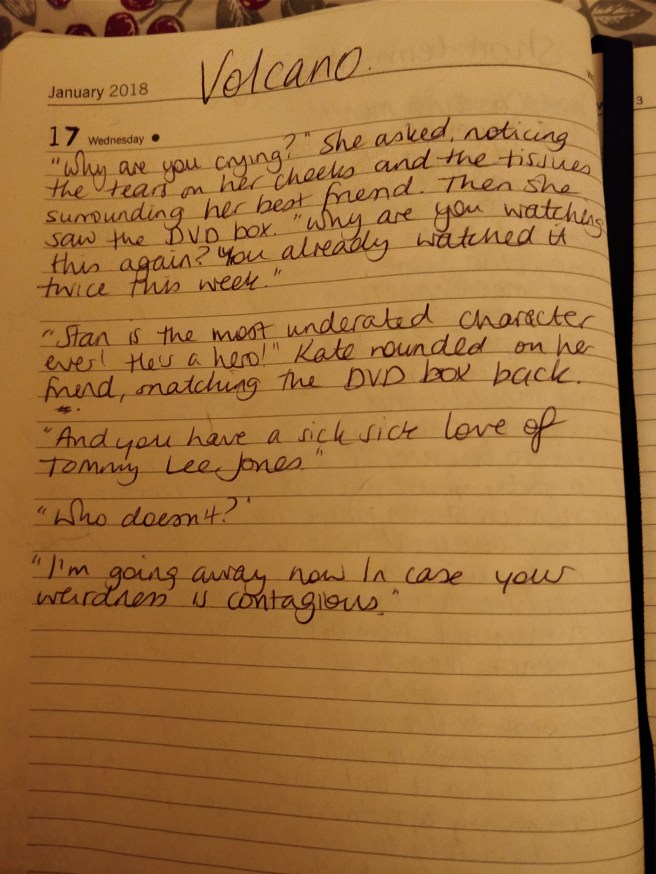 Volcano.
January 2018
17 Wednesday
"Why are you crying?" She asked, noticing
the tears on her cheeks and the tissues
surrounding her best friend. Then she
saw the DVD box. "Why are you watching
this again? You already watched it
twice this week."
"Stan is the most underated character
ever! He's a hero!" Kate rounded on her
friend, snatching the DVD box back.
"And you have a sick sick love of
Tommy Lee Jones."
"Who doesn't?"
"I'm going away now In case your
weirdness is contagious."
3